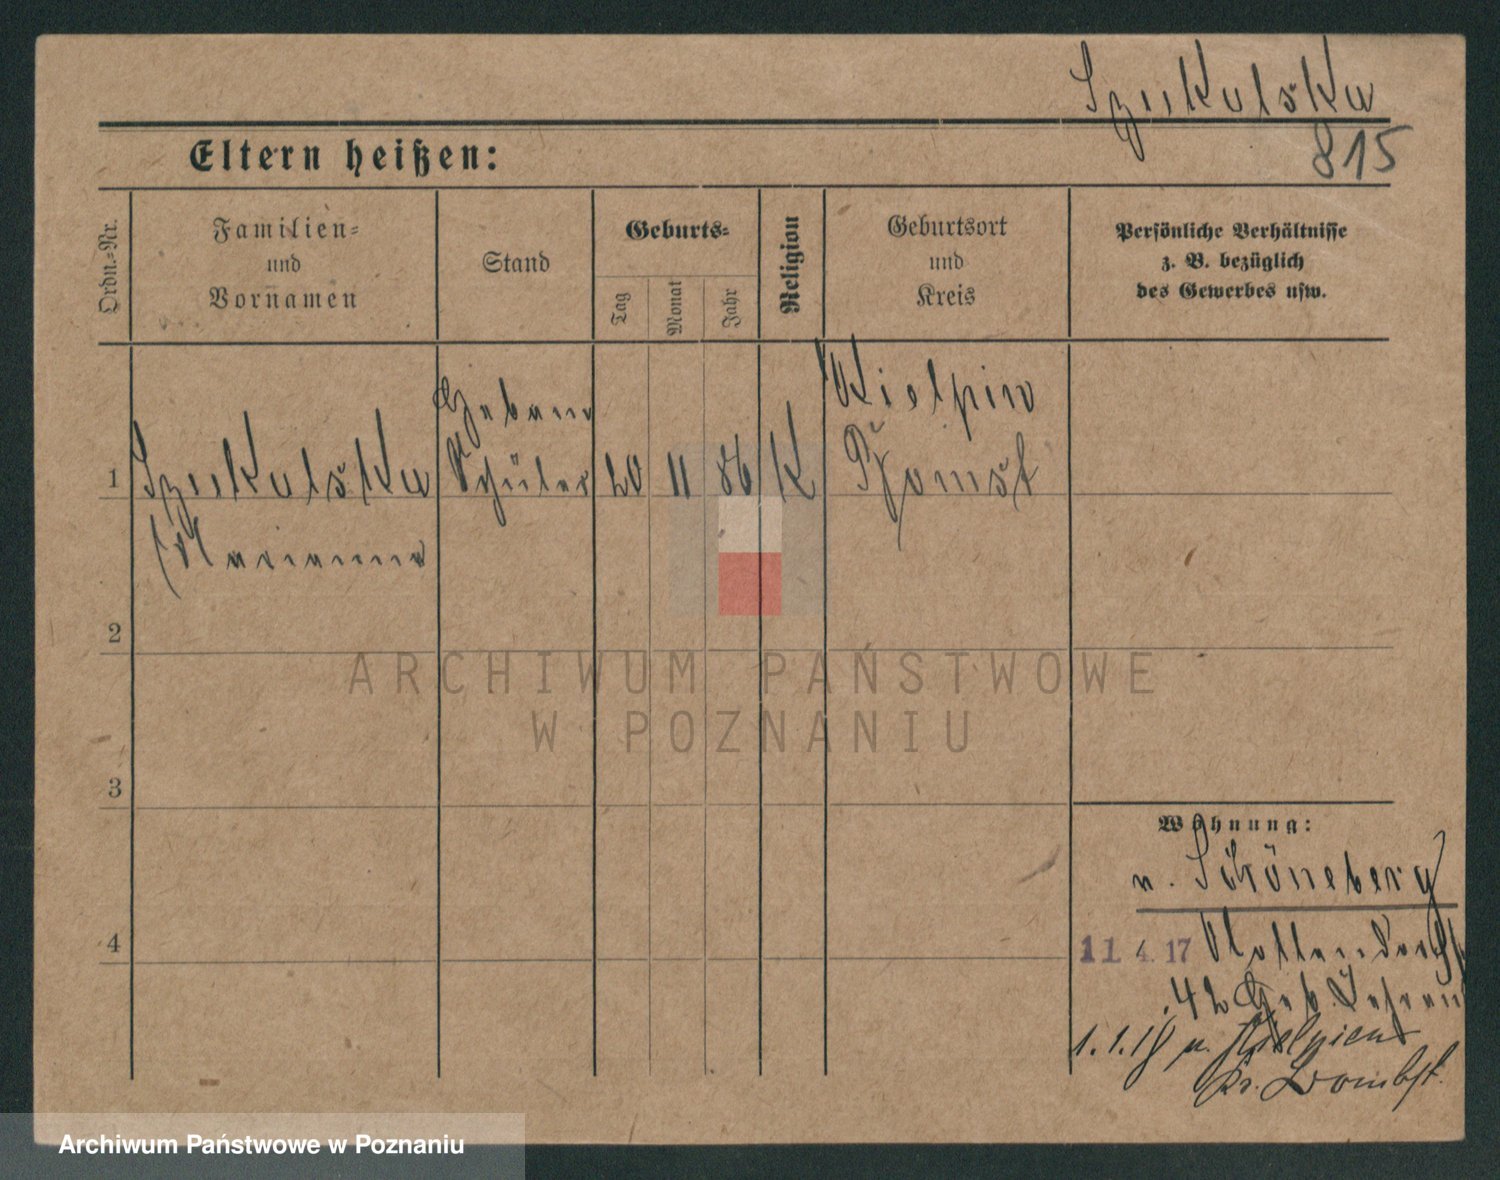 Szukulska
815
Eltern heißen:
Ordn.-Nr.
Familien-
und
Vornamen
Stand
Geburts-
Tag
Monat
Jahr
Religion
Geburtsort
und
Kreis
Persönliche Verhältnisse
z. B. bezüglich
des Gewerbes usw.
1
Szukulska
Marianna
Schüler
20
11
86
K
Kielpin
Bomst
2
3
4
ARCHIWUM PAŃSTWOWE
W POZNANIU
Wohnung:
n. Schöneberg
11 4. 17
42 Geb.
1.1.18 n.
Kr. Bomst.
Archiwum Państwowe w Poznaniu